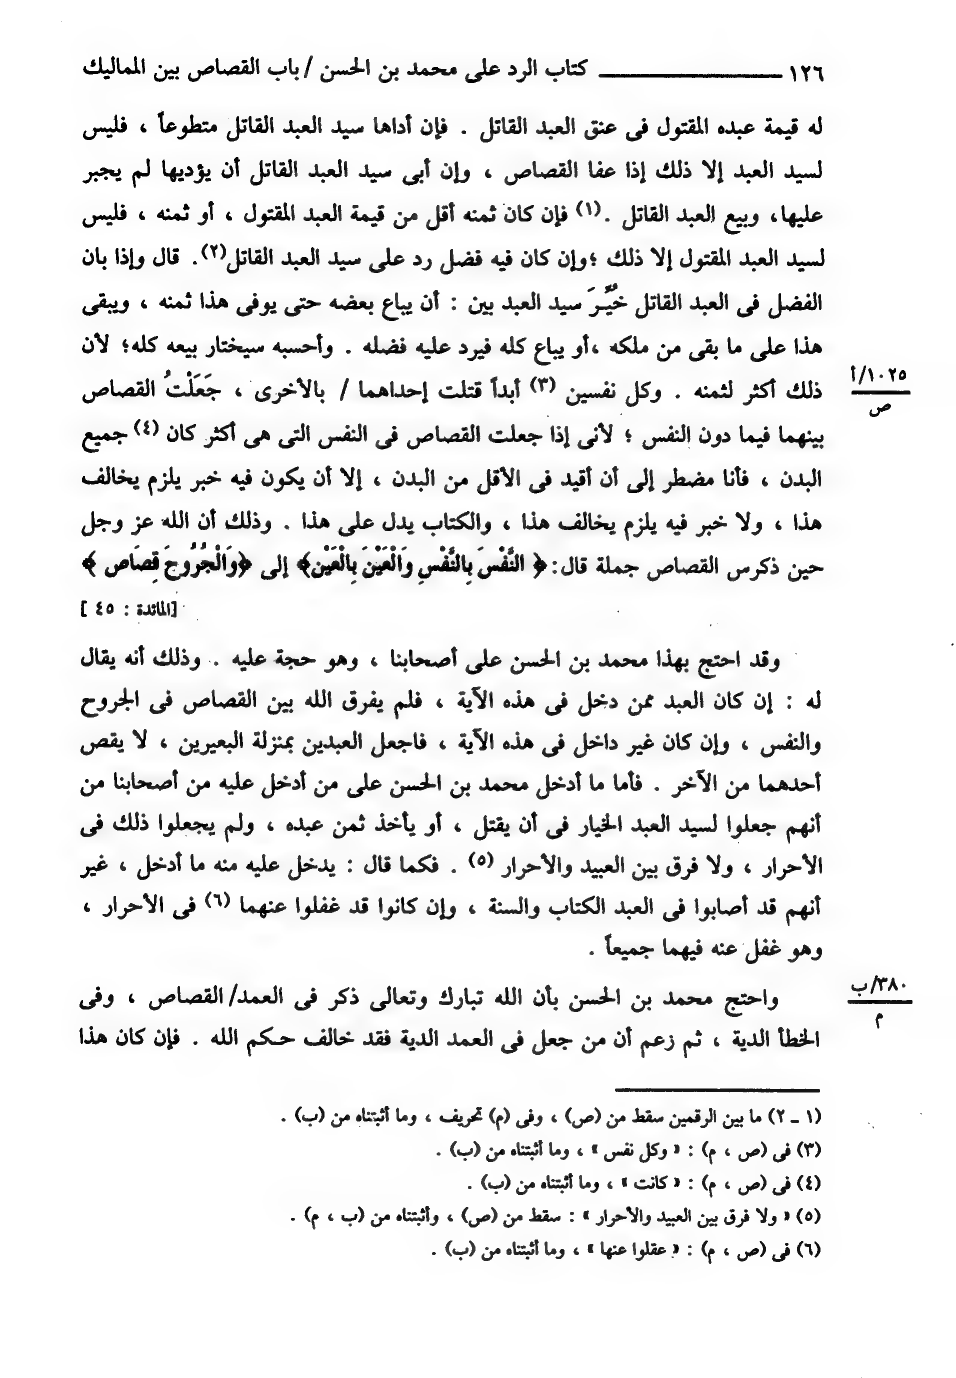 ١٢٦ ــــــــ كتاب الرد على محمد بن الحسن / باب القصاص بين المماليك
له قيمة عبده المقتول فى عنق العبد القاتل . فإن أداها سيد العبد القاتل متطوعاً ، فليس
لسيد العبد إلا ذلك إذا عفا القصاص ، وإن أبى سيد العبد القاتل أن يؤديها لم يجبر
عليها، وبيع العبد القاتل .(١) فإن كان ثمنه أقل من قيمة العبد المقتول ، أو ثمنه ، فليس
لسيد العبد المقتول إلا ذلك ؛وإن كان فيه فضل رد على سيد العبد القاتل(٢). قال وإذا بان
الفضل فى العبد القاتل خُيِّـرَ سيد العبد بين : أن يباع بعضه حتى يوفى هذا ثمنه ، ويبقى
هذا على ما بقى من ملكه ،أو يباع كله فيرد عليه فضله . وأحسبه سيختار بيعه كله؛ لأن
ذلك أكثر لثمنه . وكل نفسين (٣) أبداً قتلت إحداهما / بالأخرى ، جَعَلْتُ القصاص
١٠٢٥/أ
ص
بينهما فيما دون النفس ؛ لأنى إذا جعلت القصاص فى النفس التى هى أكثر كان (٤) جميع
البدن ، فأنا مضطر إلى أن أقيد فى الأقل من البدن ، إلا أن يكون فيه خبر يلزم يخالف
هذا ، ولا خبر فيه يلزم يخالف هذا ، والكتاب يدل على هذا . وذلك أن الله عز وجل
حين ذكرس القصاص جملة قال: ﴿ النَّفْسَ بِالنَّفْسِ وَالْعَيْنَ بِالْعَيْنِ﴾ إلى ﴿وَالْجُرُوحَ قِصَاص ﴾
[المائدة : ٤٥ ]
وقد احتج بهذا محمد بن الحسن على أصحابنا ، وهو حجة عليه . وذلك أنه يقال
له : إن كان العبد ممن دخل فى هذه الآية ، فلم يفرق الله بين القصاص فى الجروح
والنفس ، وإن كان غير داخل فى هذه الآية ، فاجعل العبدين بمنزلة البعيرين ، لا يقص
أحدهما من الآخر . فأما ما أدخل محمد بن الحسن على من أدخل عليه من أصحابنا من
أنهم جعلوا لسيد العبد الخيار فى أن يقتل ، أو يأخذ ثمن عبده ، ولم يجعلوا ذلك فى
الأحرار ، ولا فرق بين العبيد والأحرار (٥) . فكما قال : يدخل عليه منه ما أدخل ، غير
أنهم قد أصابوا فى العبد الكتاب والسنة ، وإن كانوا قد غفلوا عنهما (٦) فى الأحرار ،
وهو غفل عنه فيهما جميعاً .
واحتج محمد بن الحسن بأن الله تبارك وتعالى ذكر فى العمد/ القصاص ، وفى
٣٨٠/ب
م
الخطأ الدية ، ثم زعم أن من جعل فى العمد الدية فقد خالف حـكم الله . فإن كان هذا
(١ ـ ٢) ما بين الرقمين سقط من (ص) ، وفى (م) تحريف ، وما أثبتناه من (ب) .
(٣) فى (ص ، م) : « وكل نفس » ، وما أثبتناه من (ب) .
(٤) فى (ص ، م) : « كانت » ، وما أثبتناه من (ب) .
(٥) « ولا فرق بين العبيد والأحرار » : سقط من (ص) ، وأثبتناه من (ب ، م) .
(٦) فى (ص ، م) : « عقلوا عنها » ، وما أثبتناه من (ب) .